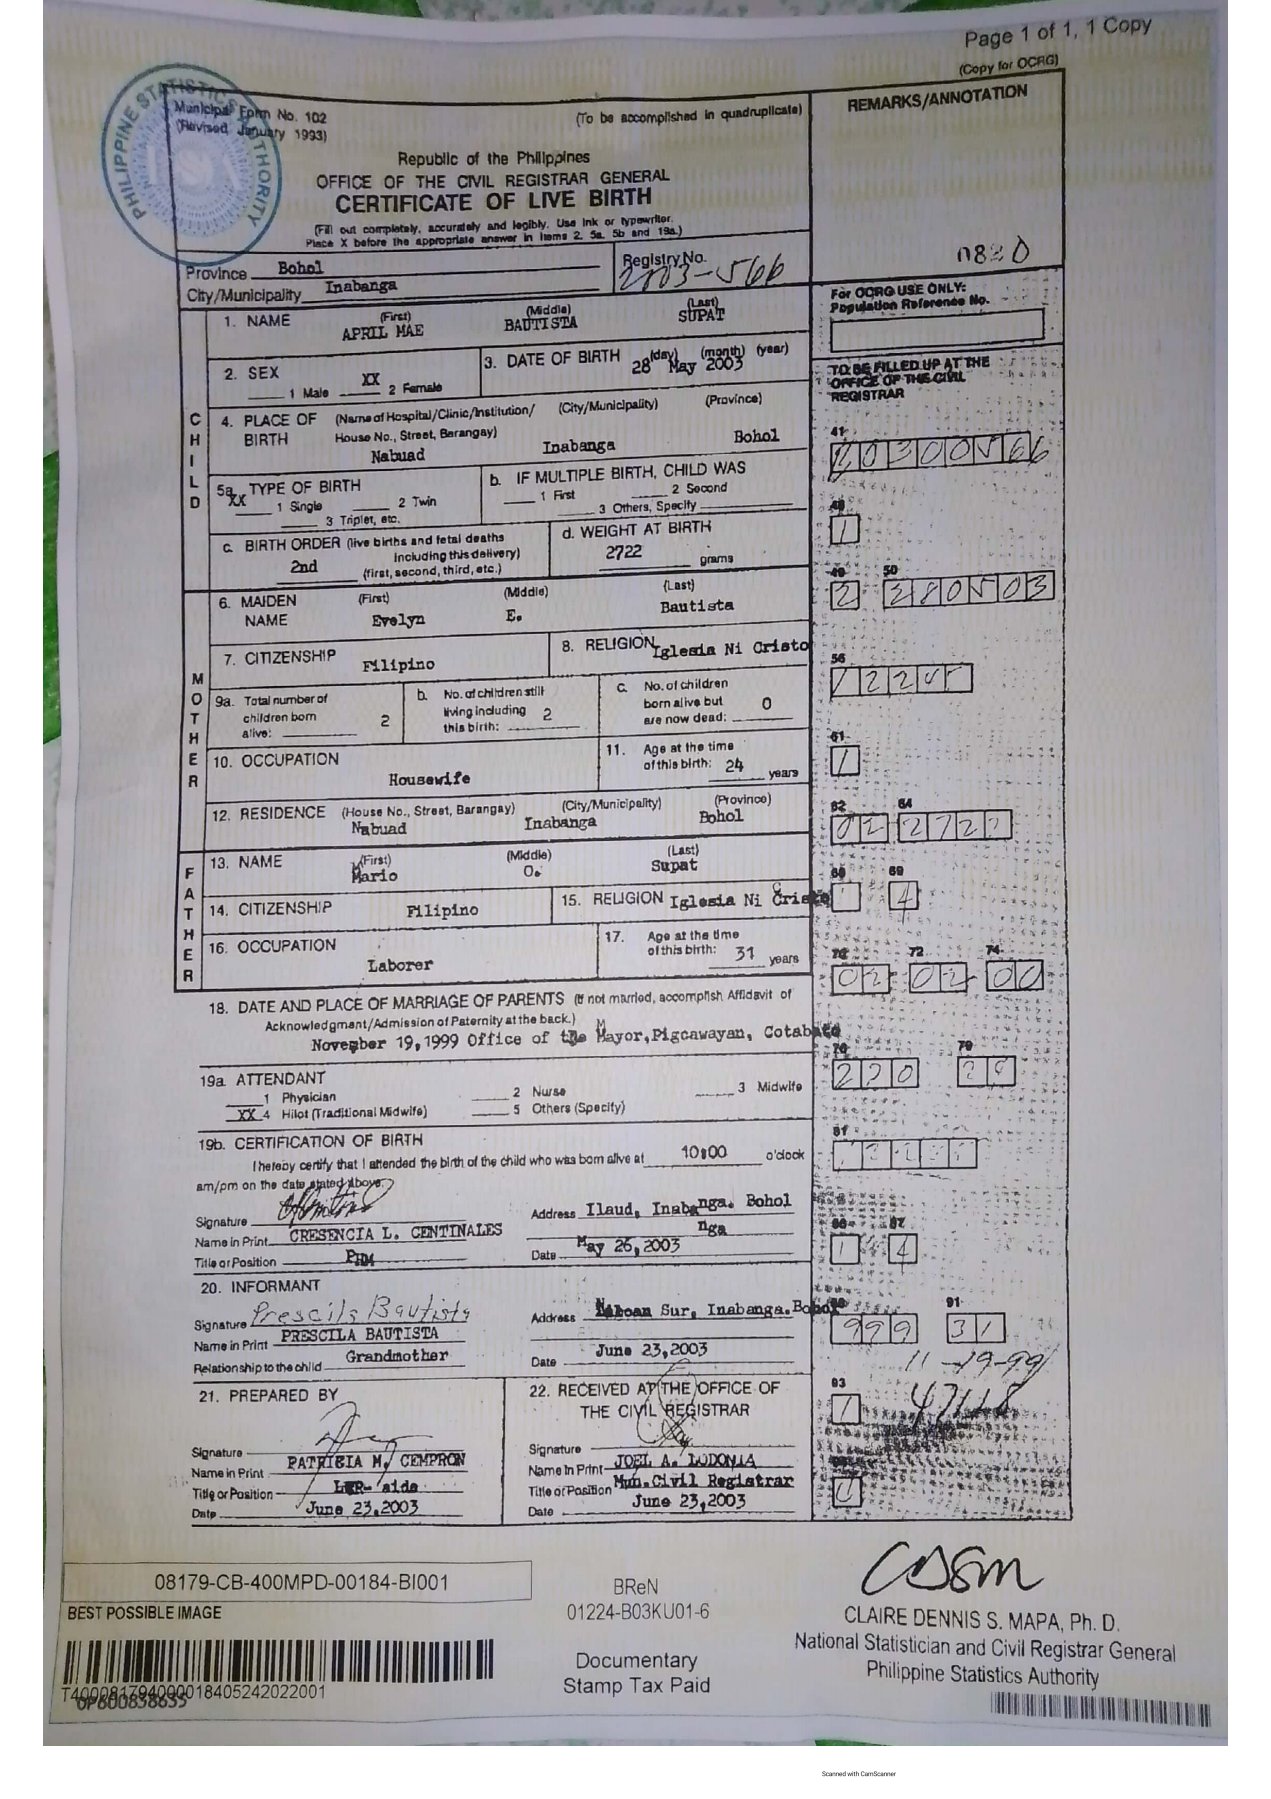 Page 1 of 1, 1 Copy
(Copy for OCRG)
PHILIPPINE STATISTICS AUTHORITY
Municipal Form No. 102
(Revised January 1993)
(To be accomplished in quadruplicate)
REMARKS/ANNOTATION
Republic of the Philippines
OFFICE OF THE CIVIL REGISTRAR GENERAL
CERTIFICATE OF LIVE BIRTH
(Fill out completely, accurately and legibly. Use ink or typewriter.
Place X before the appropriate answer in items 2, 5a, 5b and 19a.)
Province Bohol
City/Municipality Inabanga
Registry No.
2003-566
0820
For OCRG USE ONLY:
Population Reference No.
CHILD
1. NAME (First) (Middle) (Last)
APRIL MAE BAUTISTA SUPAT
2. SEX
1 Male XX 2 Female
3. DATE OF BIRTH (day) (month) (year)
28 May 2003
TO BE FILLED UP AT THE
OFFICE OF THE CIVIL
REGISTRAR
4. PLACE OF BIRTH (Name of Hospital/Clinic/Institution/ (City/Municipality) (Province)
House No., Street, Barangay)
Nabuad Inabanga Bohol
41
20300566
5a. TYPE OF BIRTH
XX 1 Single 2 Twin
3 Triplet, etc.
b. IF MULTIPLE BIRTH, CHILD WAS
1 First 2 Second
3 Others, Specify
48
1
c. BIRTH ORDER (live births and fetal deaths
including this delivery)
2nd (first, second, third, etc.)
d. WEIGHT AT BIRTH
2722 grams
49 50
2 280503
MOTHER
6. MAIDEN NAME (First) (Middle) (Last)
Evelyn E. Bautista
7. CITIZENSHIP Filipino
8. RELIGION Iglesia Ni Cristo
56
9a. Total number of
children born
alive: 2
b. No. of children still
living including
this birth: 2
c. No. of children
born alive but
are now dead: 0
10. OCCUPATION
Housewife
11. Age at the time
of this birth: 24 years
61
1
12. RESIDENCE (House No., Street, Barangay) (City/Municipality) (Province)
Nabuad Inabanga Bohol
62 64
02 2722
FATHER
13. NAME (First) (Middle) (Last)
Mario O. Supat
68 69
1 4
14. CITIZENSHIP Filipino
15. RELIGION Iglesia Ni Cristo
16. OCCUPATION
Laborer
17. Age at the time
of this birth: 31 years
70 72 74
02 02 00
18. DATE AND PLACE OF MARRIAGE OF PARENTS (If not married, accomplish Affidavit of
Acknowledgment/Admission of Paternity at the back.)
November 19,1999 Office of the Mayor,Pigcawayan, Cotabato
76 79
220
19a. ATTENDANT
1 Physician 2 Nurse 3 Midwife
XX 4 Hilot (Traditional Midwife) 5 Others (Specify)
19b. CERTIFICATION OF BIRTH
I hereby certify that I attended the birth of the child who was born alive at 10:00 o'clock
am/pm on the date stated above.
81
Signature
Name in Print CRESENCIA L. CENTINALES
Title or Position PHM
Address Ilaud, Inabanga. Bohol
nga
Date May 26,2003
86 87
1 4
20. INFORMANT
Signature Prescila Bautista
Name in Print PRESCILA BAUTISTA
Relationship to the child Grandmother
Address Sur, Inabanga.Bohol
Date June 23,2003
91
999 31
11-19-99
21. PREPARED BY
Signature
Name in Print PATRICIA M. CEMPRON
Title or Position LCR- aide
Date June 23,2003
22. RECEIVED AT THE OFFICE OF
THE CIVIL REGISTRAR
Signature
Name in Print JOEL A. LODONIA
Title or Position Mun.Civil Registrar
Date June 23,2003
93
1
08179-CB-400MPD-00184-BI001
BEST POSSIBLE IMAGE
T400081794000018405242022001
OP600838635
BReN
01224-B03KU01-6
Documentary
Stamp Tax Paid
CLAIRE DENNIS S. MAPA, Ph. D.
National Statistician and Civil Registrar General
Philippine Statistics Authority
Scanned with CamScanner